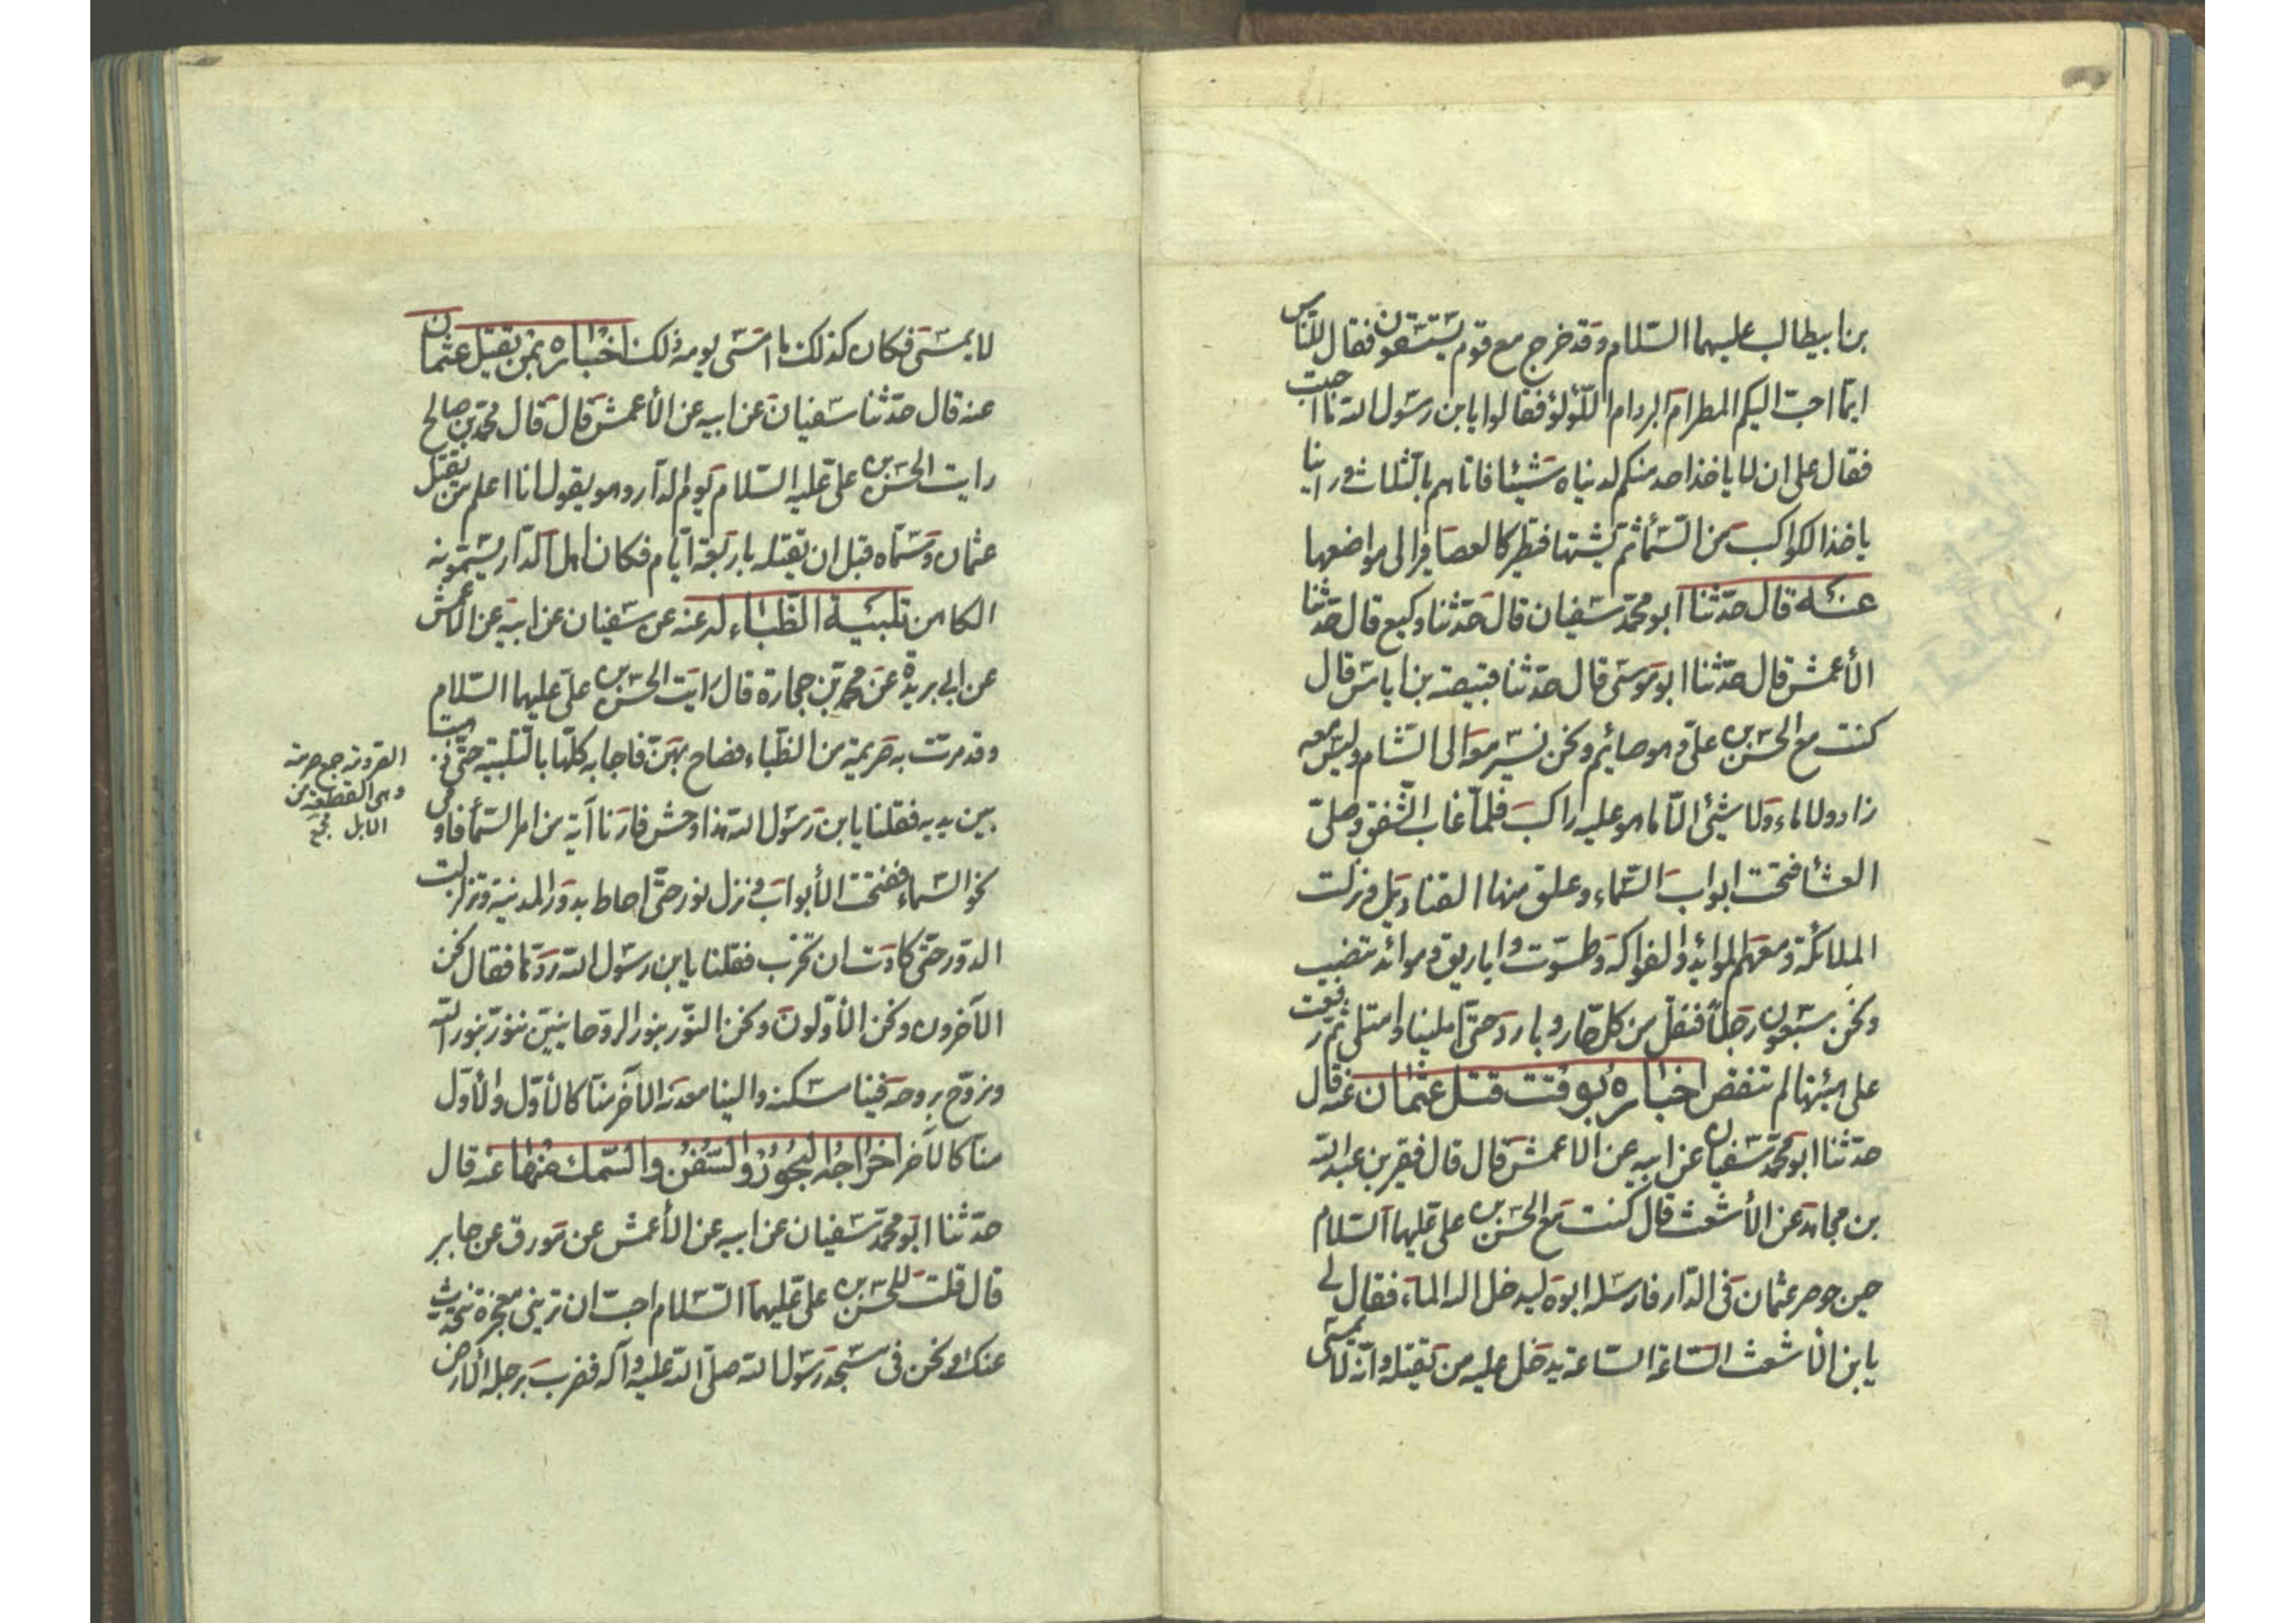 بن ابيطالب عليهما السّلام وقد خرج مع قوم يستسقون فقال للنّاس
ايّما احبّ اليكم المطر ام البرد ام اللّؤلؤ فقالوا يابن رسول الله ما احببت
فقال على ان لا ياخذ احد منكم لدنياه شيئا فاتاهم بالثلاث وراينا
ياخذ الكواكب من السّمأ ثمّ يشتها فتطير كالعصافير الى مواضعها
عنه قال حدّثنا ابو محمّد سفيان قال حدّثنا وكيع قال حدّثنا
الأعمش قال حدّثنا ابو موسى قال حدّثنا قبيصة بن اياس قال
كنت مع الحسن بن علىّ وهو صائم ونحن نسير معه الى الشّام وليس معه
زاد ولا ماء ولا شيئ الّا ما هو عليه راكب فلمّا غاب الشّفق وصلىّ
العشا فتحت ابواب السّماء وعلق منها القناديل ونزلت
الملائكة ومعهم الموائد والفواكه وطسوت واباريق وموائد تنصب
ونحن سبعون رجلاً فنقل من كلّ حار وبارد حتّى امتلينا وامتلى ثمّ رفعت
على هيئتها لم تنقص اخباره بوقت قتل عثمان عنه قال
حدّثنا ابو محمّد سفيان عن ابيه عن الاعمش قال قال فقير بن عبد الله
بن مجاهد عن الأشعث قال كنت مع الحسن بن على عليهما السّلام
حين حوصر عثمان فى الدّار فارسله ابوه ليدخل اليه الماء فقال لى
يابن الأشعث السّاعة السّاعة يدخل عليه من يقتله وانّه لا يمسى
لا يمسى فكان كذلك ما امسى يومه ذلك اخباره بمن يقتل عثمان
عنه قال حدّثنا سفيان عن ابيه عن الأعمش قال قال محمّد بن صالح
رايت الحسن بن علىّ عليه السّلام يوم الدّار وهو يقول انا اعلم من يقتل
عثمان وسمّاه قبل ان يقتله باربعة ايّام فكان اهل الدّار يسمّونه
الكاهن تلبية الظّباء له عنه عن سفيان عن ابيه عن الأعمش
عن ابى بريدة عن محمّد بن حجارة قال رايت الحسن بن علىّ عليهما السّلام
وقد مرّت به صريمة من الظّباء فصاح بهنّ فاجابه كلّها بالتّلبية حتّى ذهبت
بين يديه فقلنا يابن رسول الله هذا وحش فارنا آية من امر السّمأ فاومى
نحو السّماء ففتحت الأبواب ونزل نور حتّى احاط بدور المدينة وتزلزلت
الدّور حتّى كادت ان تخرب فقلنا يابن رسول الله ردّها فقال نحن
الآخرون ونحن الأوّلون ونحن النّور بنور الرّوحانيين ننوّر بنور الله
ونروّح بروحه فينا مسكنه والينا معدنه الآخر منّا كالأوّل والأوّل
منا كالآخر اخراجه البحور والسّفن والسّمك منها عنه قال
حدّثنا ابو محمّد سفيان عن ابيه عن الأعمش عن مورق عن جابر
قال قلت للحسن بن علىّ عليهما السّلام احبّ ان ترينى معجزة نتحدّث
عنك ونحن فى مسجد رسول الله صلّى الله عليه وآله فضرب برجله الأرض
جمع صرمة
وهى القطعة من
الابل